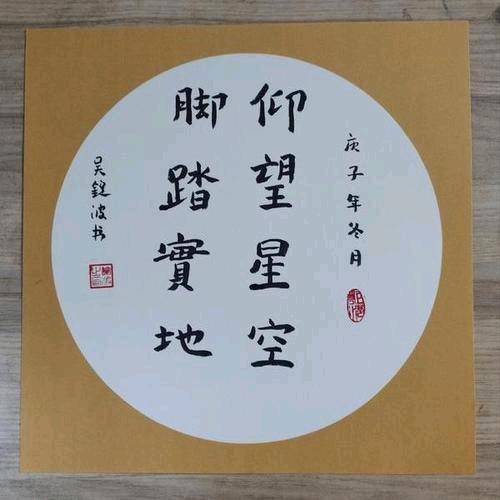 庚子年冬月
仰望星空
脚踏實地
吴錠波书